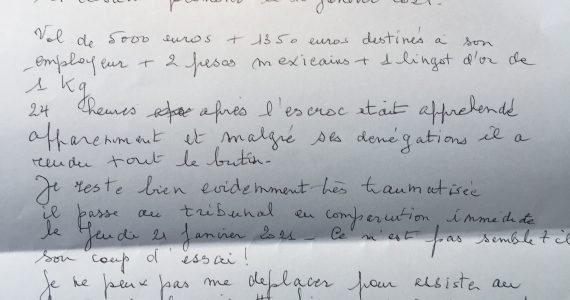 janvier 2021.
Vol de 5000 euros + 1350 euros destinés à son
employeur + 2 pesos mexicains + 1 lingot d'or de
1 Kg
24 heures après l'escroc était appréhendé
apparemment et malgré ses dénégations il a
rendu tout le butin.
Je reste bien evidemment très traumatisée
il passe au tribunal en comparution immédiate
le Jeudi 21 Janvier 2021 - Ce n'est pas semble t il
son coup d'essai !
Je ne peux pas me déplacer pour assister au